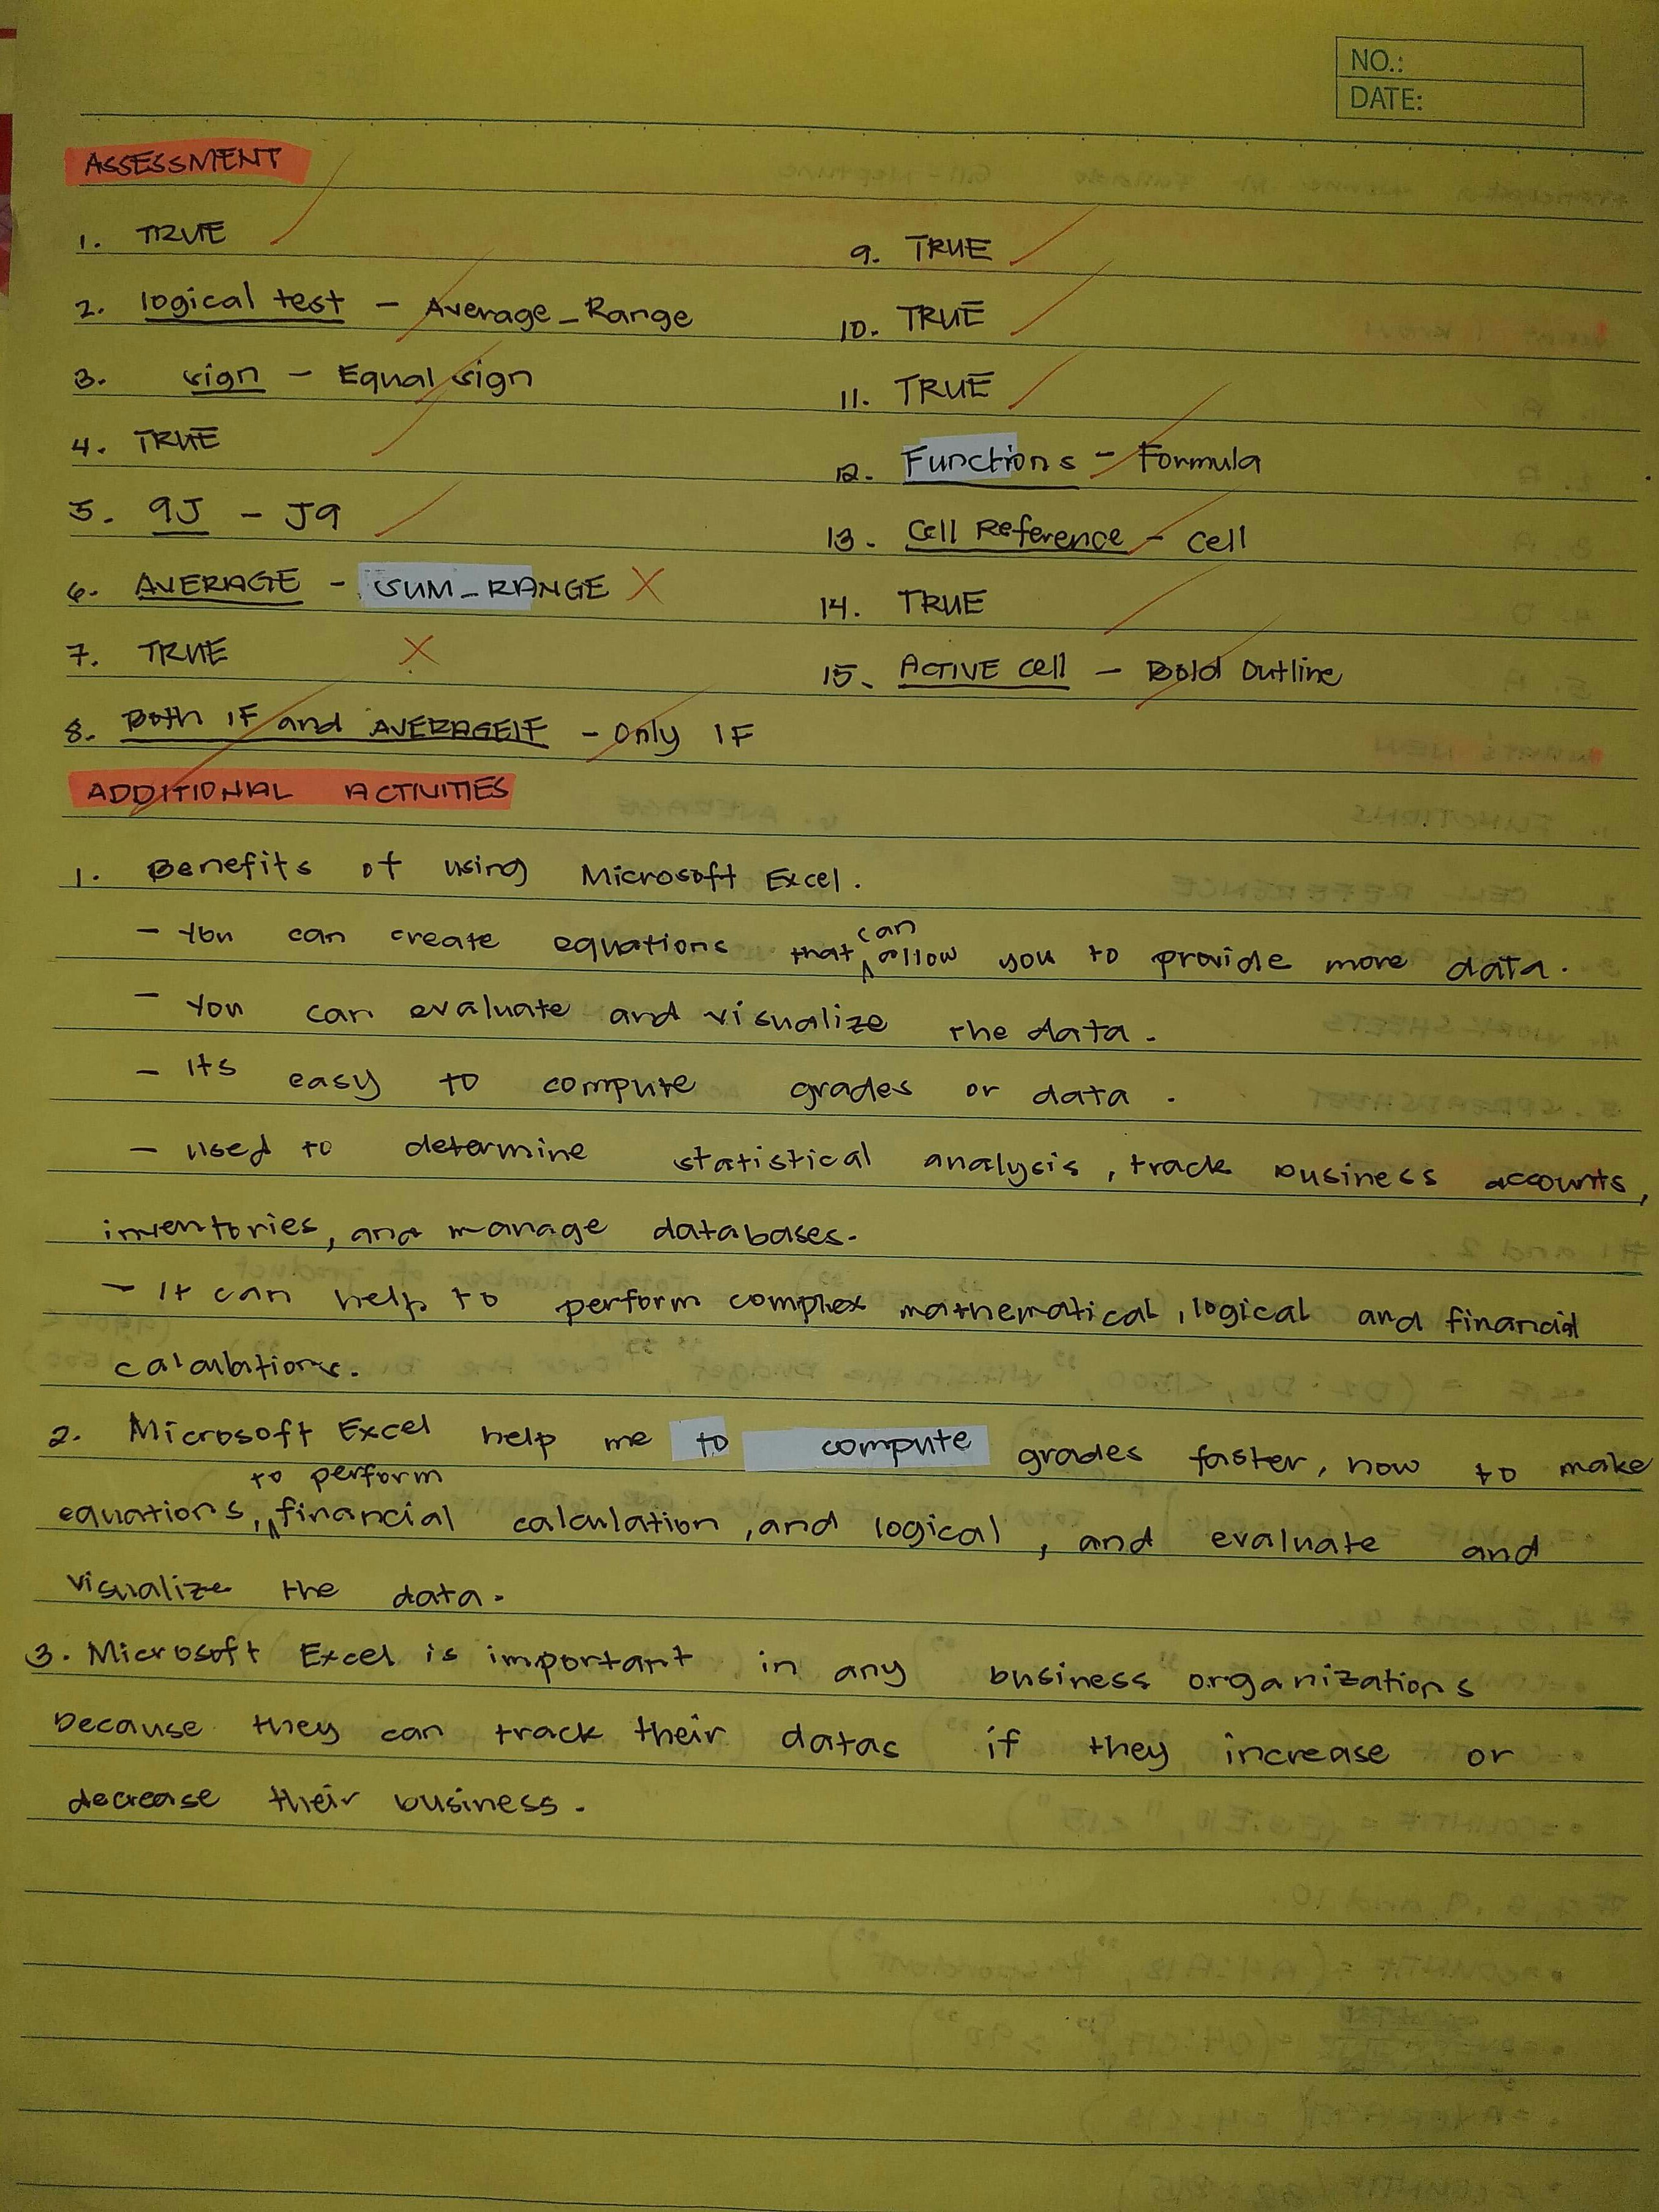 NO.:
DATE:
ASSESSMENT
1. TRUE
2. logical test - Average_Range
3. sign - Equal sign
4. TRUE
5. 9J - J9
6. AVERAGE - SUM_RANGE X
7. TRUE X
8. Both IF and AVERAGEIF - Only IF
9. TRUE
10. TRUE
11. TRUE
12. Functions - Formula
13. Cell Reference - cell
14. TRUE
15. ACTIVE cell - Bold Outline
ADDITIONAL ACTIVITIES
1. Benefits of using Microsoft Excel.
- You can create equations that can allow you to provide more data.
- You can evaluate and visualize the data.
- Its easy to compute grades or data.
- Used to determine statistical analysis, track business accounts,
inventories, and manage databases.
- It can help to perform complex mathematical, logical and financial
calculations.
2. Microsoft Excel help me to compute grades faster, how to make
equations, to perform financial calculation, and logical, and evaluate and
visualize the data.
3. Microsoft Excel is important in any business organizations
because they can track their datas if they increase or
decrease their business.